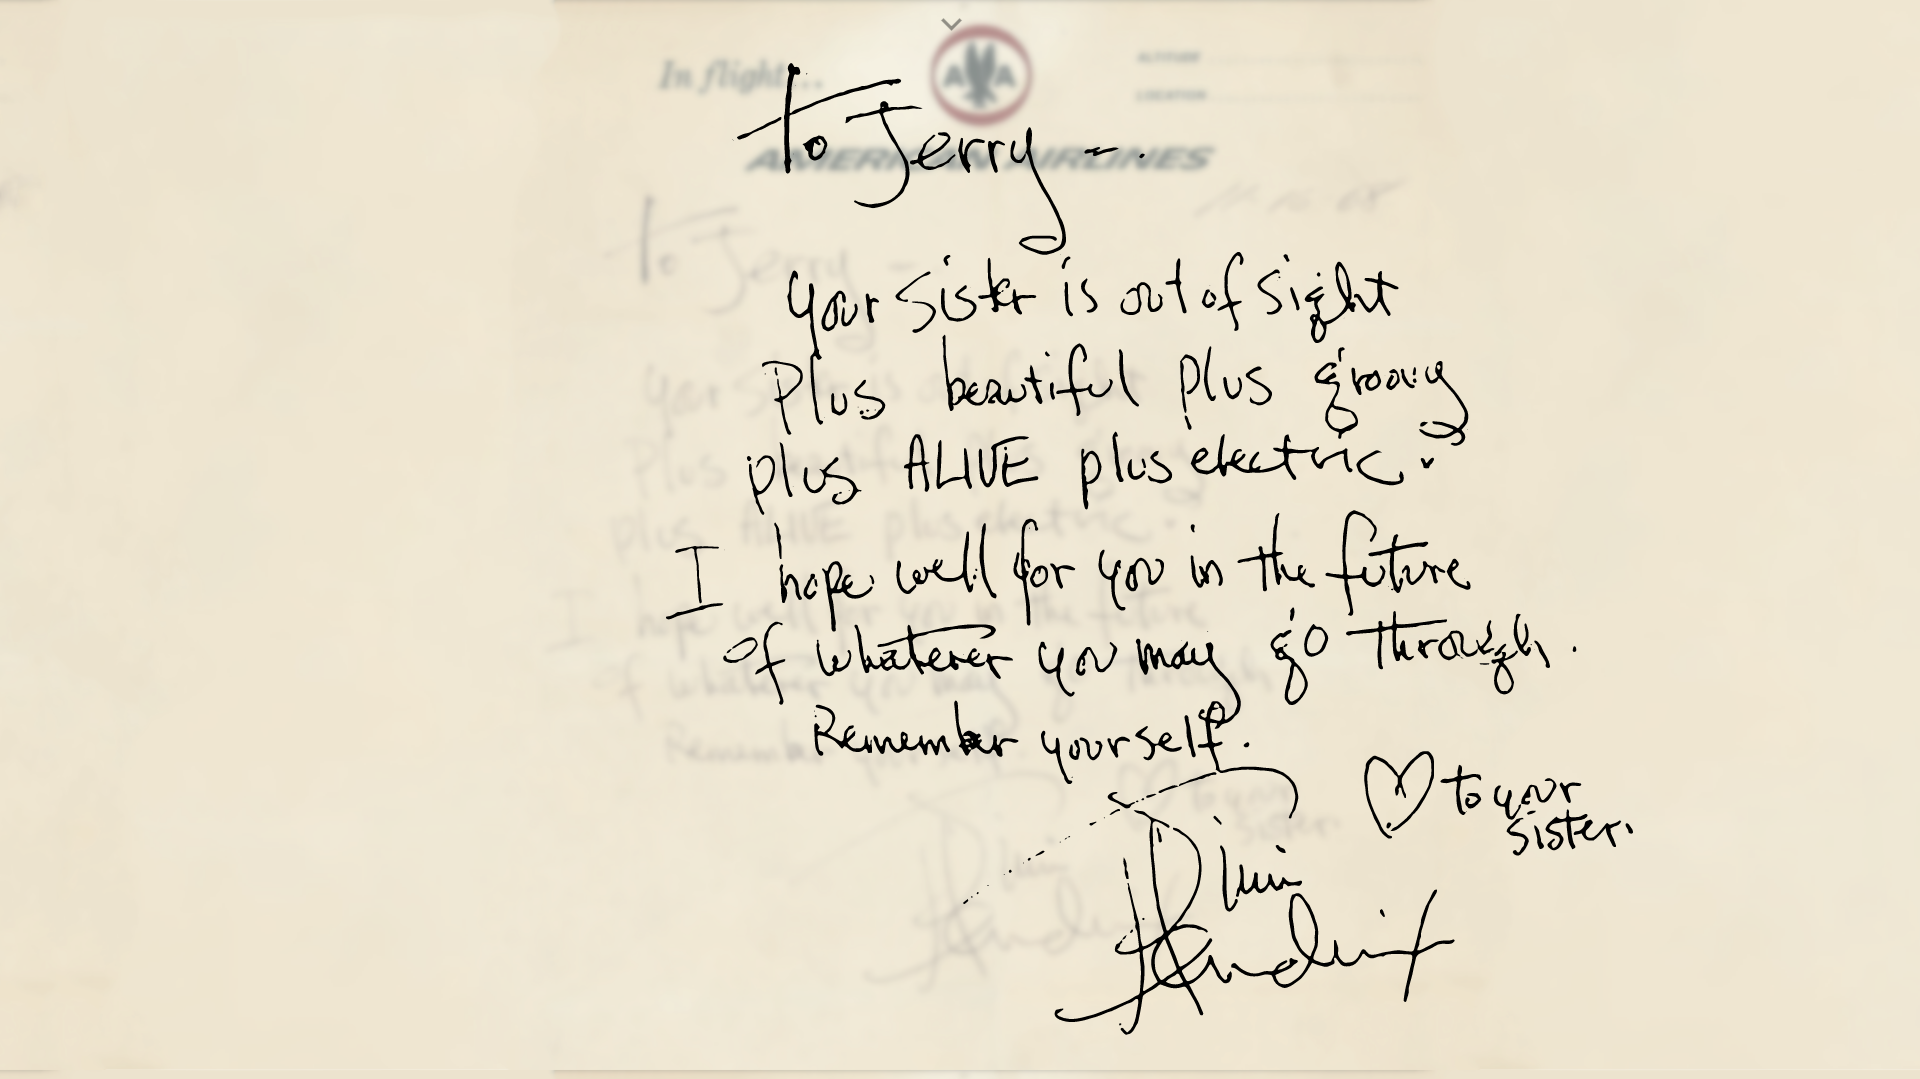 In flight...
AA
ALTITUDE
LOCATION
AMERICAN AIRLINES
to Jerry -.
your sister is out of sight
Plus beautiful plus groovy
plus ALIVE plus electric..
I hope well for you in the future
of whatever you may go through.
Remember yourself.
♡ to your
sister.
Jimi
Hendrix